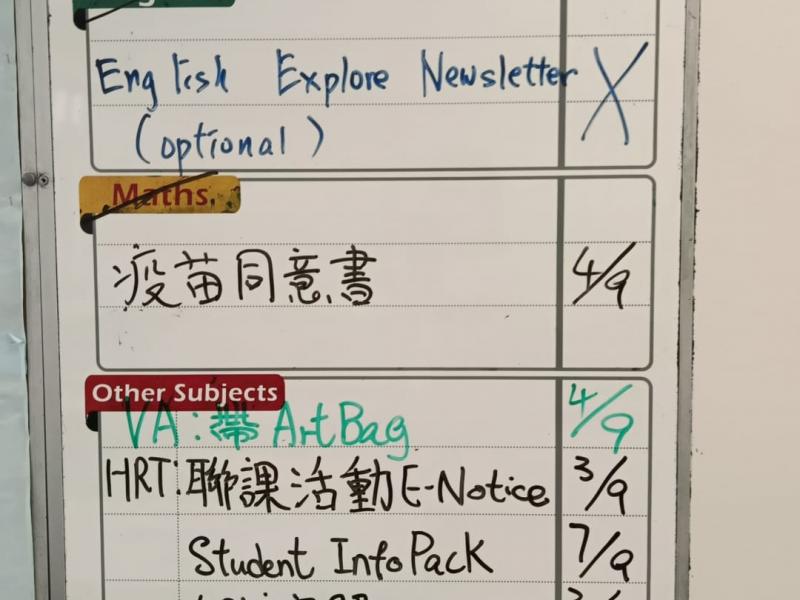 English Explore Newsletter X
(optional)
Maths
疫苗同意書 4/9
Other Subjects
VA: 帶 Art Bag 4/9
HRT: 聯課活動 E-Notice 3/9
Student Info Pack 7/9